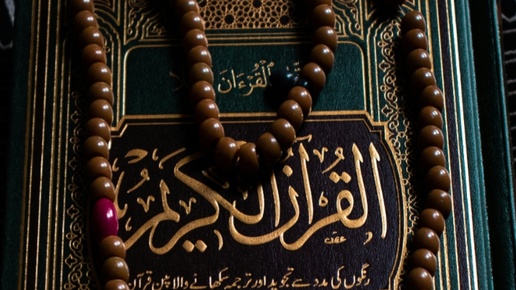 القرءان
القرآن الكريم
رنگوں کی مدد سے تجوید اور ترجمہ سکھانے والا پہن قرآن